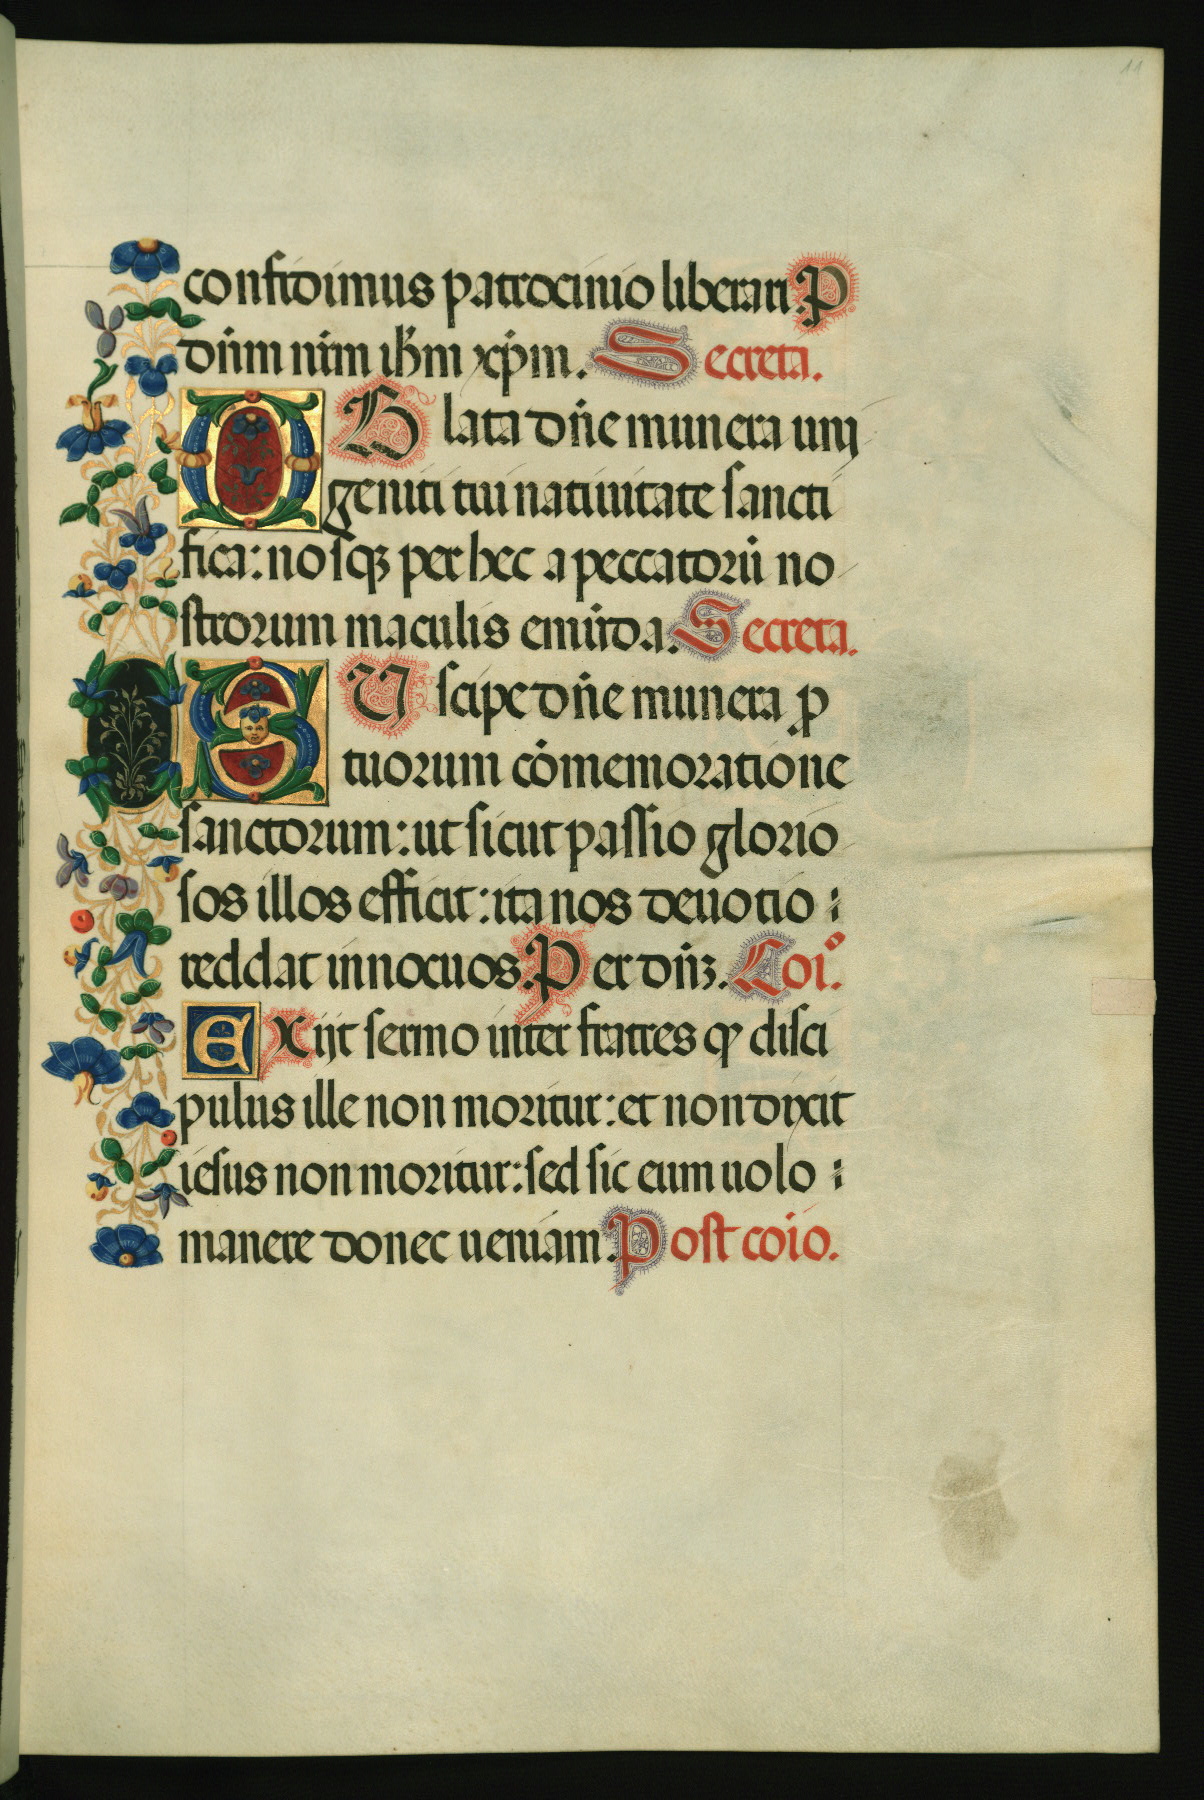 11
confidimus patrocinio liberari. P
dn̄m nr̄m ih̄m xp̄m. Secreta.
OBlata dn̄e munera uni
geniti tui natiuitate sancti
fica: nosq₃ per hec a peccatorū no
strorum maculis emūda. Secreta.
SUscipe dn̄e munera ꝓ
tuorum cōmemoratione
sanctorum: ut sicut passio glorio
sos illos efficit: ita nos deuotio
reddat innocuos. Per dn̄ʒ. Coīo.
EXijt sermo inter fratres ꝙ disci
pulus ille non moritur: et non dixit
iesus non moritur: sed sic eum uolo
manere donec ueniam. Post coīo.